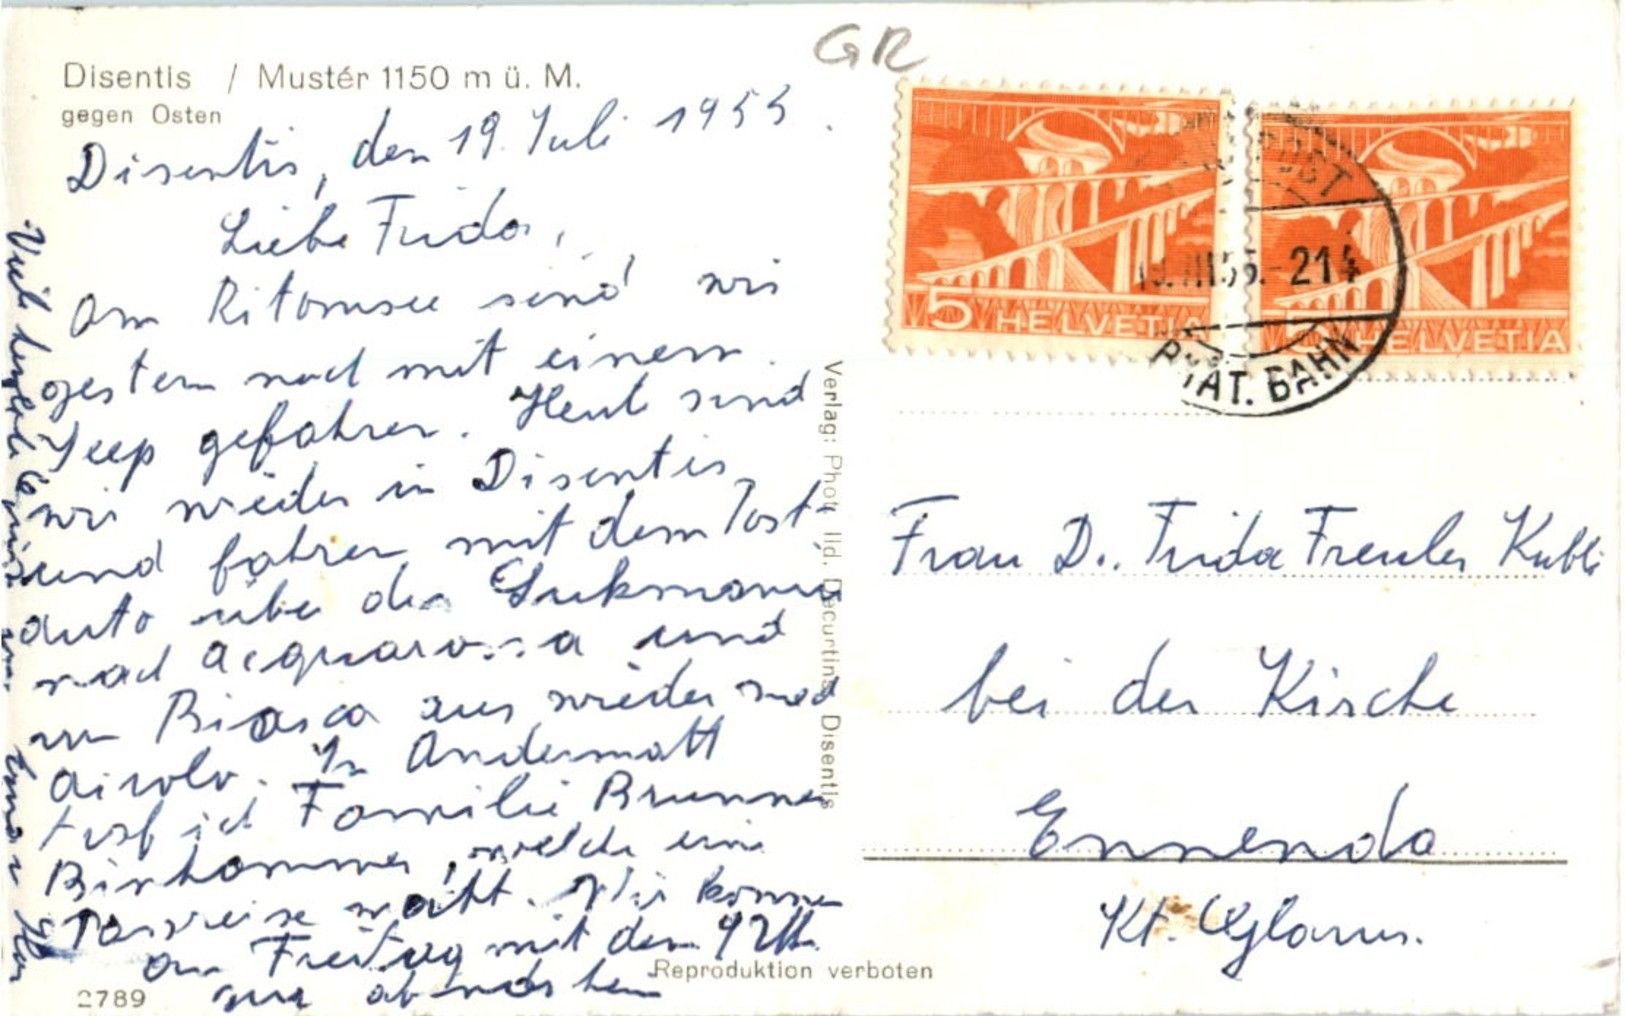 GR
Disentis / Mustér 1150 m ü. M.
gegen Osten
Disentis, den 19. Juli 1955.
Liebe Frida,
Am Ritomsee sind wir
gestern noch mit einem
Jeep gefahren. Heute sind
wir wieder in Disentis
und fahren mit dem Post
auto über den Lukmanier
nach Acquarossa und
von Biasca aus wieder nach
Airolo. In Andermatt
traf ich Familie Brunner
welche eine
Passreise macht. Wir kommen
am Freitag mit dem 9 Uhr
Zug
Viele herzliche Grüsse von
2789
Verlag: Photo Ild. Decurtins, Disentis
Reproduktion verboten
5 HELVETIA
5 HELVETIA
POST
55.-214
BAHN
Frau D. Frida Freuler Kubli
bei der Kirche
Ennenda
Kt. Glarus.